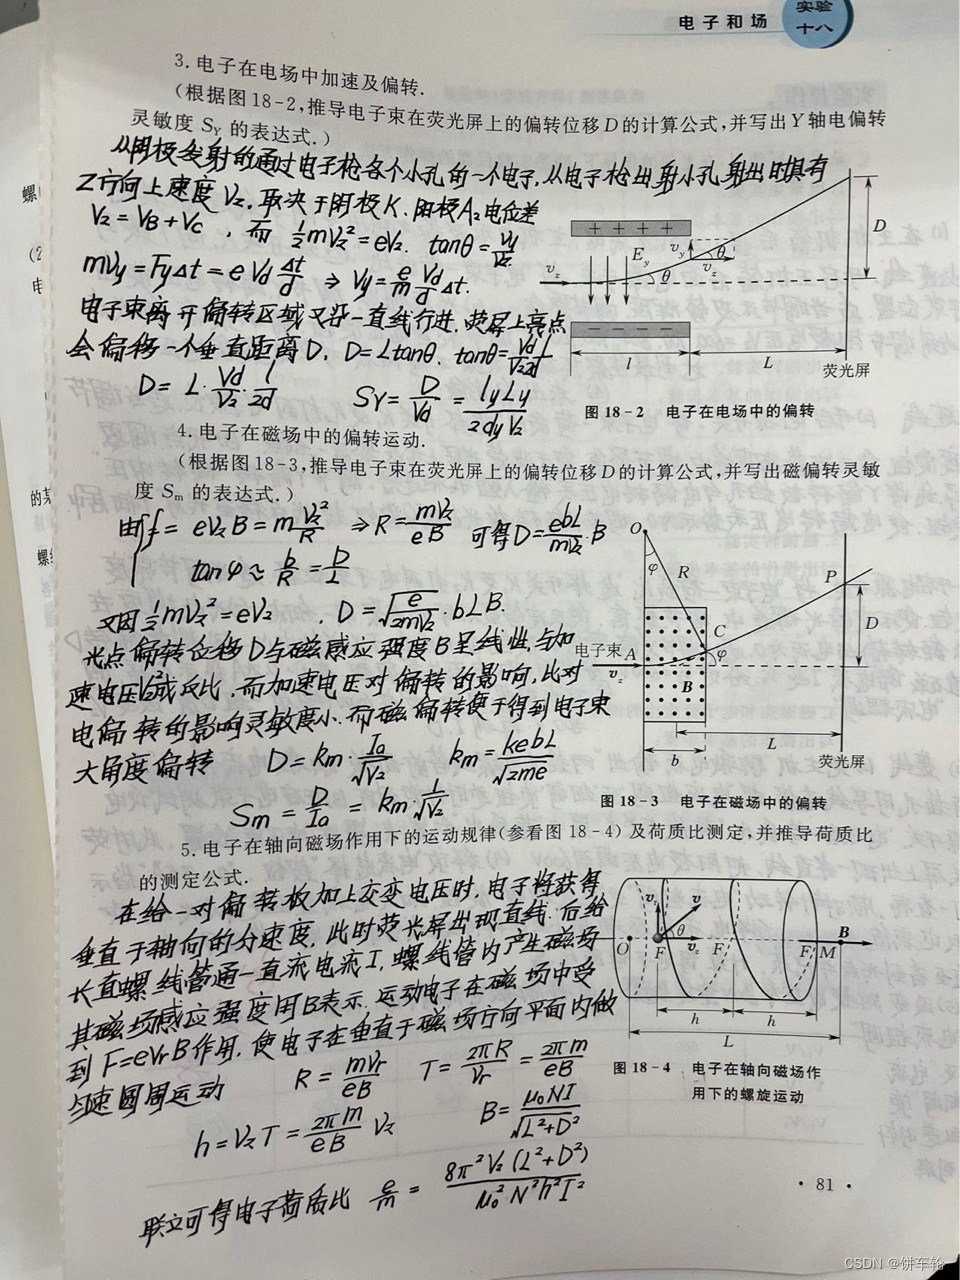 电子和场
实验
十八
3. 电子在电场中加速及偏转.
(根据图18-2,推导电子束在荧光屏上的偏转位移D的计算公式,并写出Y轴电偏转
灵敏度 S_Y 的表达式.)
从阴极发射的通过电子枪各个小孔的一个电子,从电子枪出射小孔射出时具有
Z方向上速度 V_z,取决于阴极K、阳极A₂电位差
V₂ = V_B + V_C , 而 ½mV_z² = eV₂. tanθ = V_y/V_z
mV_y = F_yΔt = eV_d Δt/d ⇒ V_y = e/m V_d/d Δt.
电子束离开偏转区域又沿一直线行进,荧屏上亮点
会偏移一个垂直距离D, D = Ltanθ. tanθ = V_d l/V₂2d
D = L · V_d/V₂ · l/2d S_Y = D/V_d = l_y L_y/2d_y V₂
+ + + +
E_y
v_y
θ
v_z
v_z
θ
D
− − − −
l
L
荧光屏
图 18-2 电子在电场中的偏转
4. 电子在磁场中的偏转运动.
(根据图18-3,推导电子束在荧光屏上的偏转位移D的计算公式,并写出磁偏转灵敏
度 S_m 的表达式.)
由{ f = eV_zB = m V_z²/R ⇒ R = mV_z/eB 可得D = ebL/mV_z · B
tanφ ≈ b/R = D/L
又因 ½mV_z² = eV₂ , D = √(e/2mV₂) · bLB.
光点偏转位移D与磁感应强度B呈线性,与加
速电压V₂^½成反比,而加速电压对偏转的影响,比对
电偏转的影响灵敏度小.而磁偏转便于得到电子束
大角度偏转 D = k_m · I_a/√V₂ k_m = kebL/√2me
S_m = D/I_a = k_m · 1/√V₂
O
φ
R
P
C
D
电子束 A
v_z
φ
B
b
L
荧光屏
图 18-3 电子在磁场中的偏转
5. 电子在轴向磁场作用下的运动规律(参看图 18-4) 及荷质比测定,并推导荷质比
的测定公式.
在给一对偏转板加上交变电压时,电子将获得
垂直于轴向的分速度,此时荧光屏出现直线.后给
长直螺线管通一直流电流I,螺线管内产生磁场
其磁场感应强度用B表示.运动电子在磁场中受
到 F=eV_rB作用,使电子在垂直于磁场方向平面内做
匀速圆周运动 R = mV_r/eB T = 2πR/V_r = 2πm/eB
h = V_zT = 2πm/eB V_z B = μ₀NI/√L²+D²
联立可得电子荷质比 e/m = 8π²V₂(L²+D²)/μ₀²N²h²I²
v_r
v
θ
v_z
O
F
F′
F″
M
B
h
h
L
图 18-4 电子在轴向磁场作
用下的螺旋运动
· 81 ·
CSDN @饼车轮